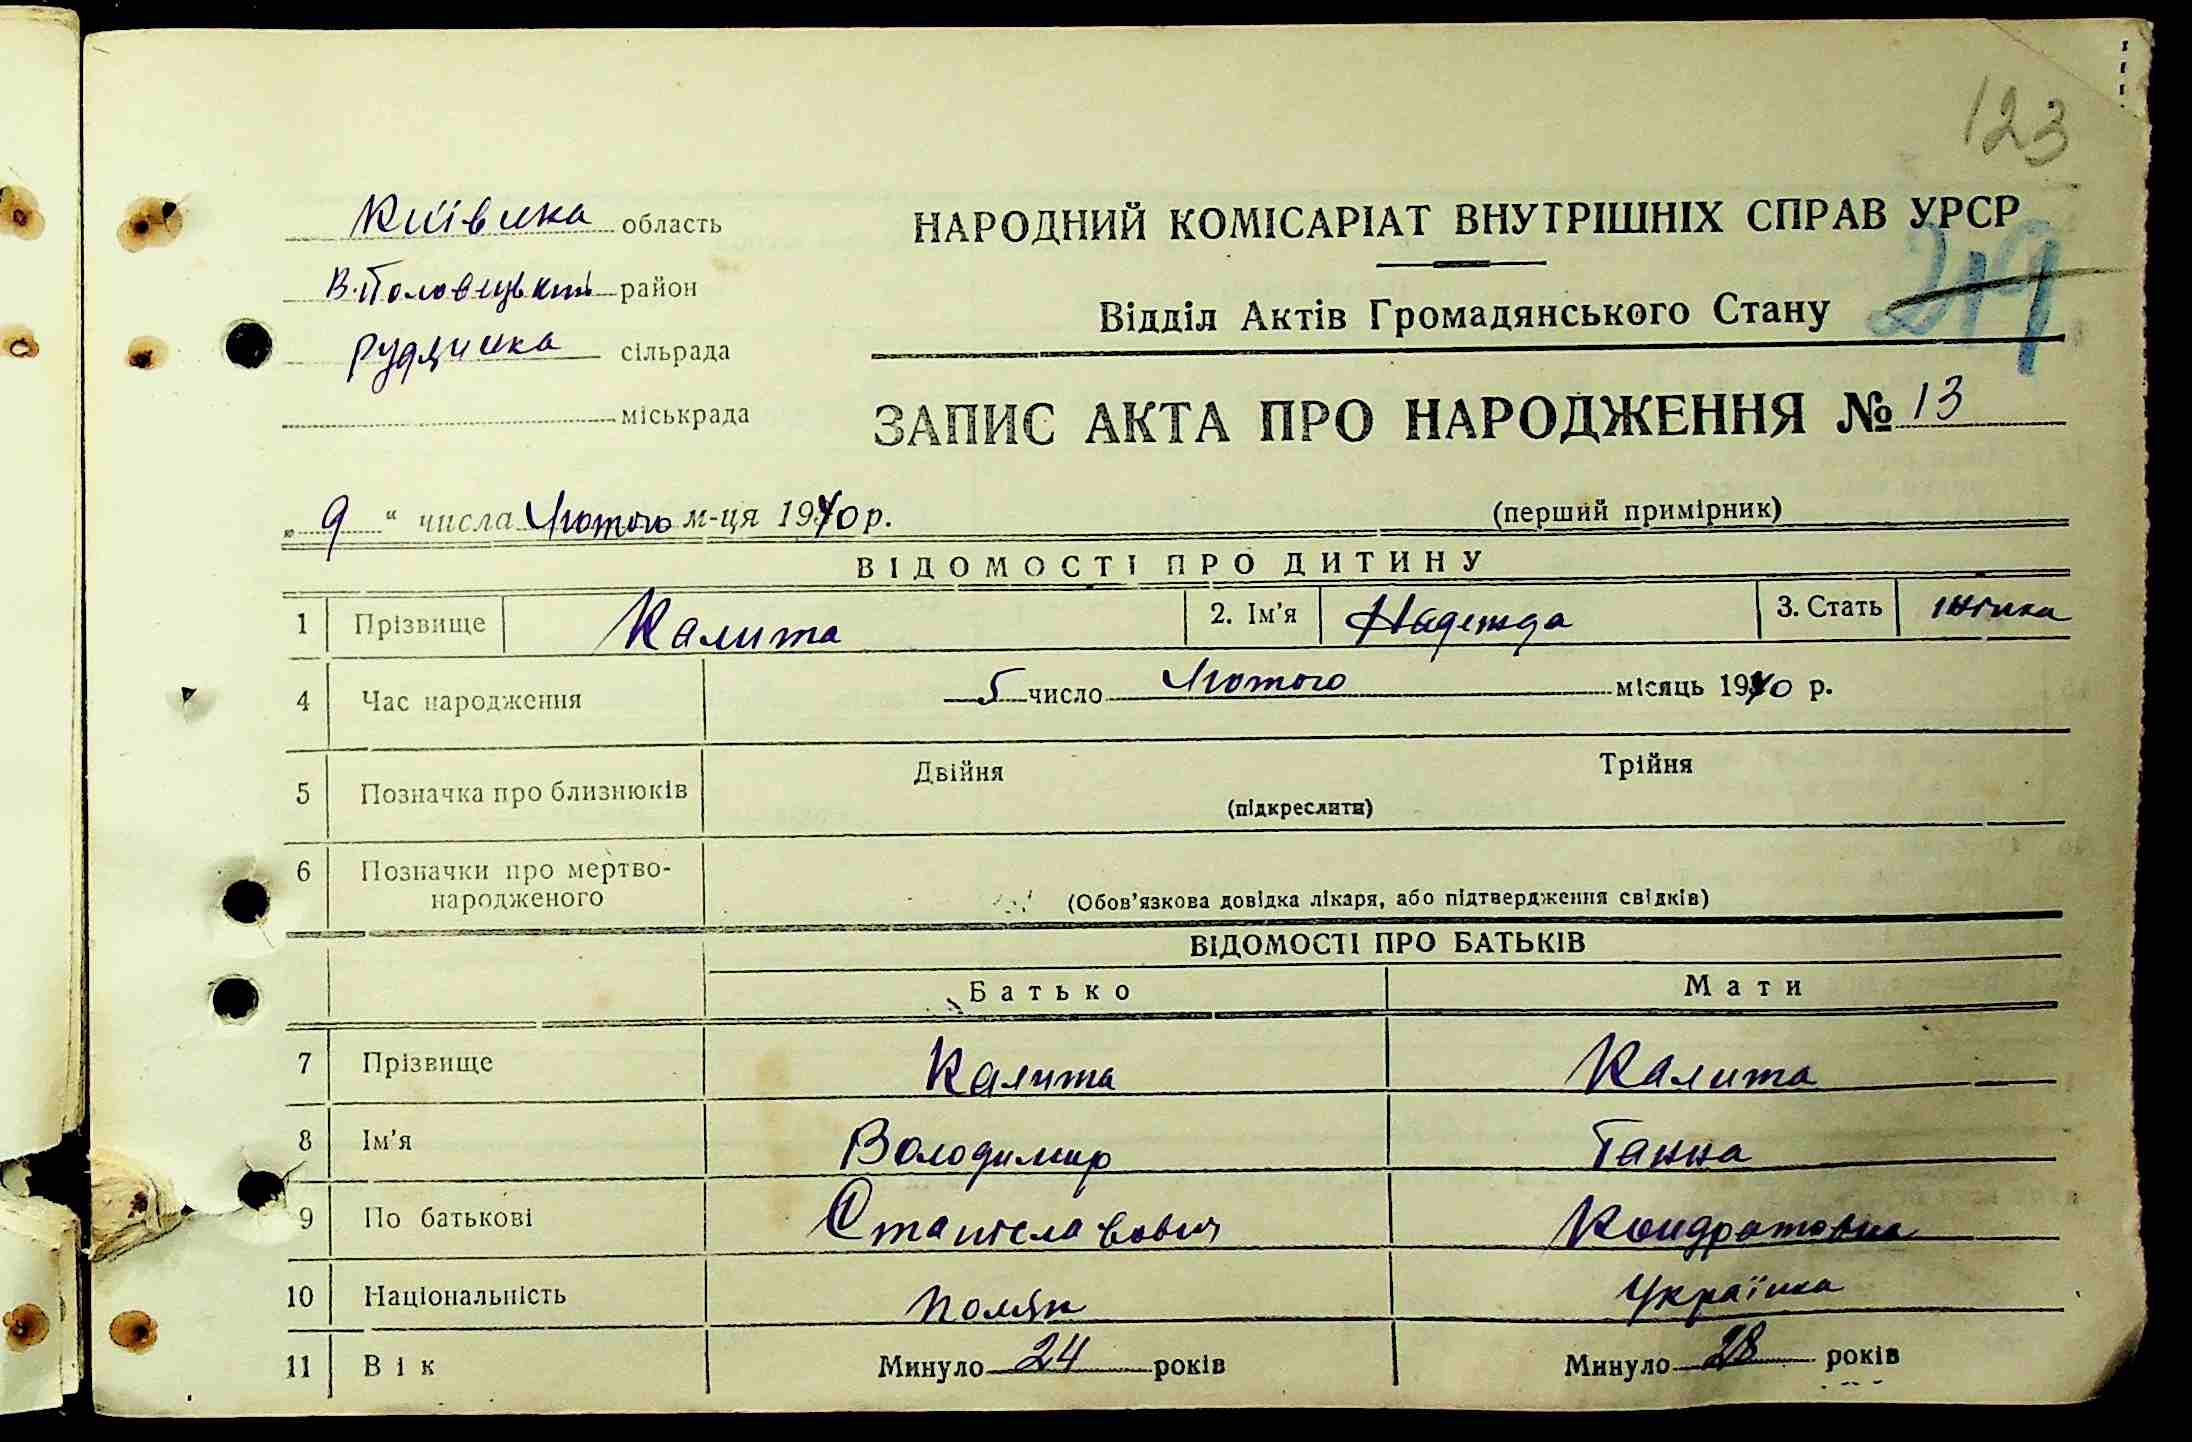 123
Київська область
НАРОДНИЙ КОМІСАРІАТ ВНУТРІШНІХ СПРАВ УРСР
В.Половецький район
219
Відділ Актів Громадянського Стану
сільрада
міськрада
ЗАПИС АКТА ПРО НАРОДЖЕННЯ № 13
„ 9 “ числа Лютого м-ця 1940 р.
(перший примірник)
ВІДОМОСТІ ПРО ДИТИНУ
1 Прізвище Калита 2. Ім'я Надежда 3. Стать жіноча
4 Час народження 5 число Лютого місяць 1940 р.
5 Позначка про близнюків Двійня Трійня
(підкреслити)
6 Позначки про мертво-
народженого (Обов'язкова довідка лікаря, або підтвердження свідків)
ВІДОМОСТІ ПРО БАТЬКІВ
Батько Мати
7 Прізвище Калита Калита
8 Ім'я Володимир Ганна
9 По батькові Станіславович Кондратовна
10 Національність поляк Українка
11 Вік Минуло 24 років Минуло 28 років